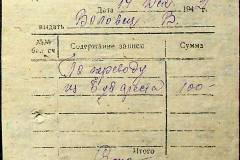 Дата 19 194
выдать Воловик В.
№№ бал. сч. Содержание записи Сумма
По переводу
из Бухареста 100-
Итого